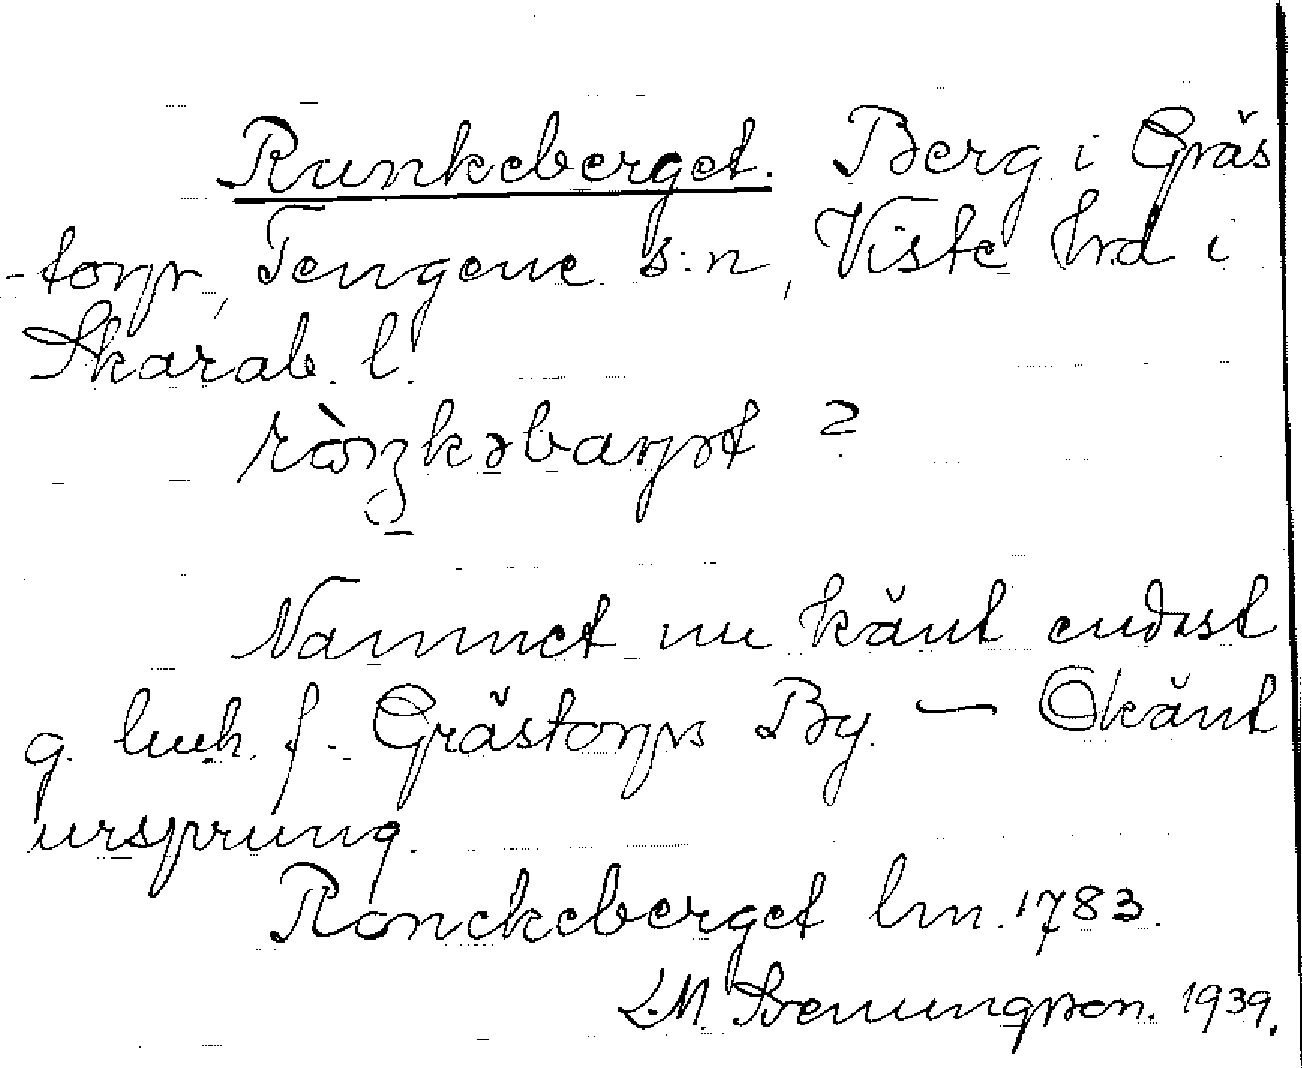 Runkeberget. Berg i Gräs
-torp, Tengene s:n, Viste hrd i
Skarab. l.
Namnet nu känt endast
g. luh. f. Grästorps By. — Okänt
ursprung.
Ronckeberget lm. 1783.
L.M. Svenungsson. 1939.